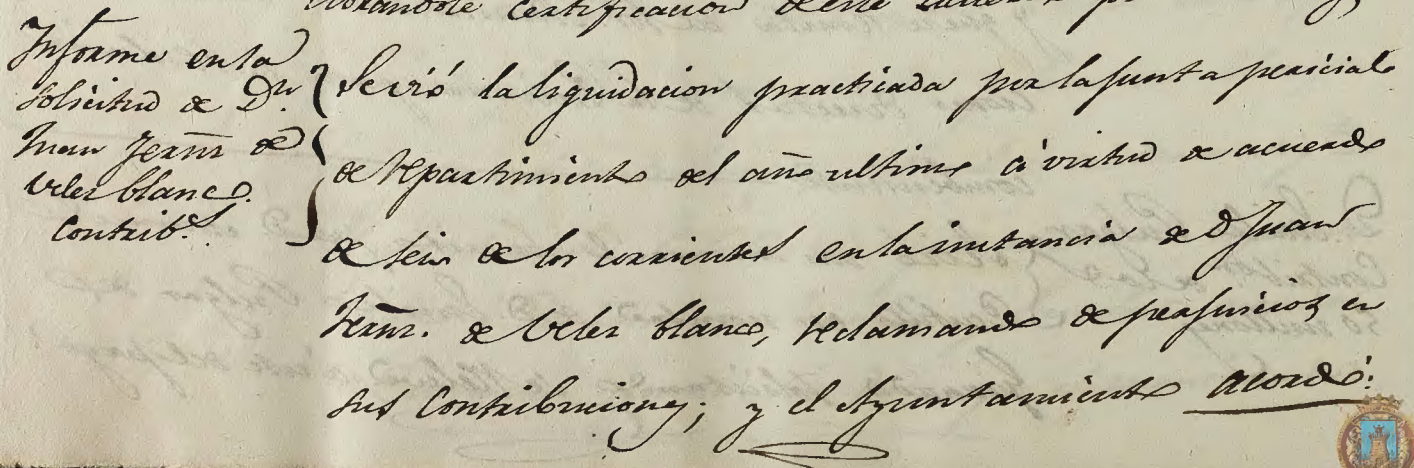 Certificacion de este
Informe en la
solicitud de Dn.
Juan Fernz. de
Velez blanco.
Contribs.
Se vió la liquidacion practicada por la junta pericial
de repartimiento del año ultimo á virtud de acuerdo
de seis de los corrientes en la instancia de D Juan
Fernz. de Velez blanco, reclamando de perjuicios en
sus Contribuciones; y el Ayuntamiento acordó: